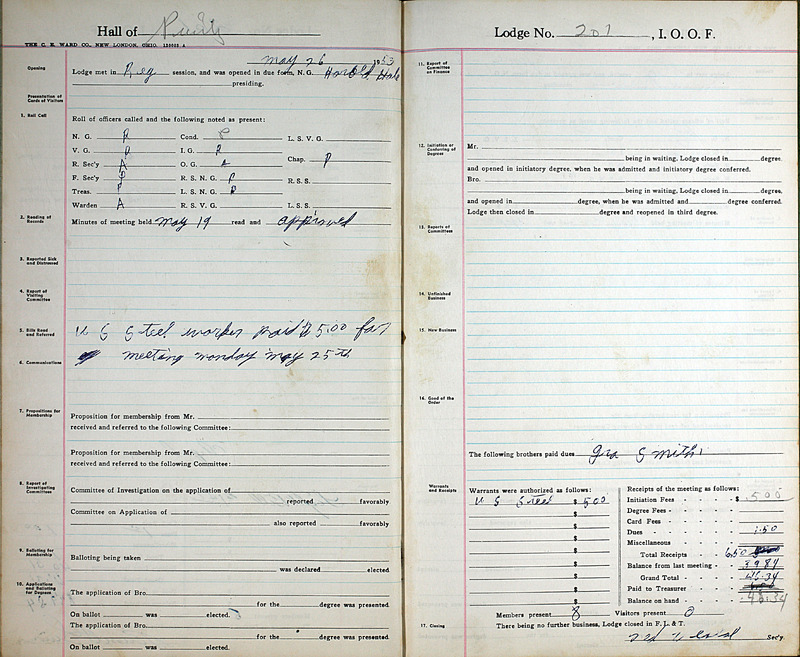 Hall of Purity
THE C. E. WARD CO., NEW LONDON, OHIO.
May 26 1953
Opening
Lodge met in Reg session, and was opened in due form, N. G. Harold
presiding.
Presentation of Cards of Visitors
1. Roll Call
Roll of officers called and the following noted as present:
N. G. P Cond. P L. S. V. G.
V. G. P I. G. P
Chap. P
R. Sec'y A O. G. A
F. Sec'y P R. S. N. G. P R. S. S.
Treas. P L. S. N. G. P
Warden A R. S. V. G. L. S. S.
2. Reading of Records
Minutes of meeting held May 19 read and approved
3. Reported Sick and Distressed
4. Report of Visiting Committee
5. Bills Read and Referred
U S Steel worker paid $5.00 for
meeting monday may 25th
6. Communications
7. Propositions for Membership
Proposition for membership from Mr.
received and referred to the following Committee:
Proposition for membership from Mr.
received and referred to the following Committee:
8. Report of Investigating Committees
Committee of Investigation on the application of
reported favorably
Committee on Application of
also reported favorably
9. Balloting for Membership
Balloting being taken
was declared elected.
10. Applications and Balloting for Degrees
The application of Bro.
for the degree was presented.
On ballot was elected.
The application of Bro.
for the degree was presented.
On ballot was elected.
Lodge No. 207, I. O. O. F.
11. Report of Committee on Finance
12. Initiation or Conferring of Degrees
Mr.
being in waiting, Lodge closed in degree,
and opened in initiatory degree, when he was admitted and initiatory degree conferred.
Bro.
being in waiting, Lodge closed in degree,
and opened in degree, when he was admitted and degree conferred.
Lodge then closed in degree and reopened in third degree.
13. Reports of Committees
14. Unfinished Business
15. New Business
16. Good of the Order
The following brothers paid dues Geo Smith
Warrants and Receipts
Warrants were authorized as follows:
U S Steel $ 5.00
$
$
$
$
$
$
$
$
Receipts of the meeting as follows:
Initiation Fees $ 5.00
Degree Fees
Card Fees
Dues 1.50
Miscellaneous
Total Receipts 6.50
Balance from last meeting 39.84
Grand Total 46.34
Paid to Treasurer
Balance on hand 46.34
Members present 8 Visitors present 0
17. Closing
There being no further business, Lodge closed in F. L. & T.
Sec'y.